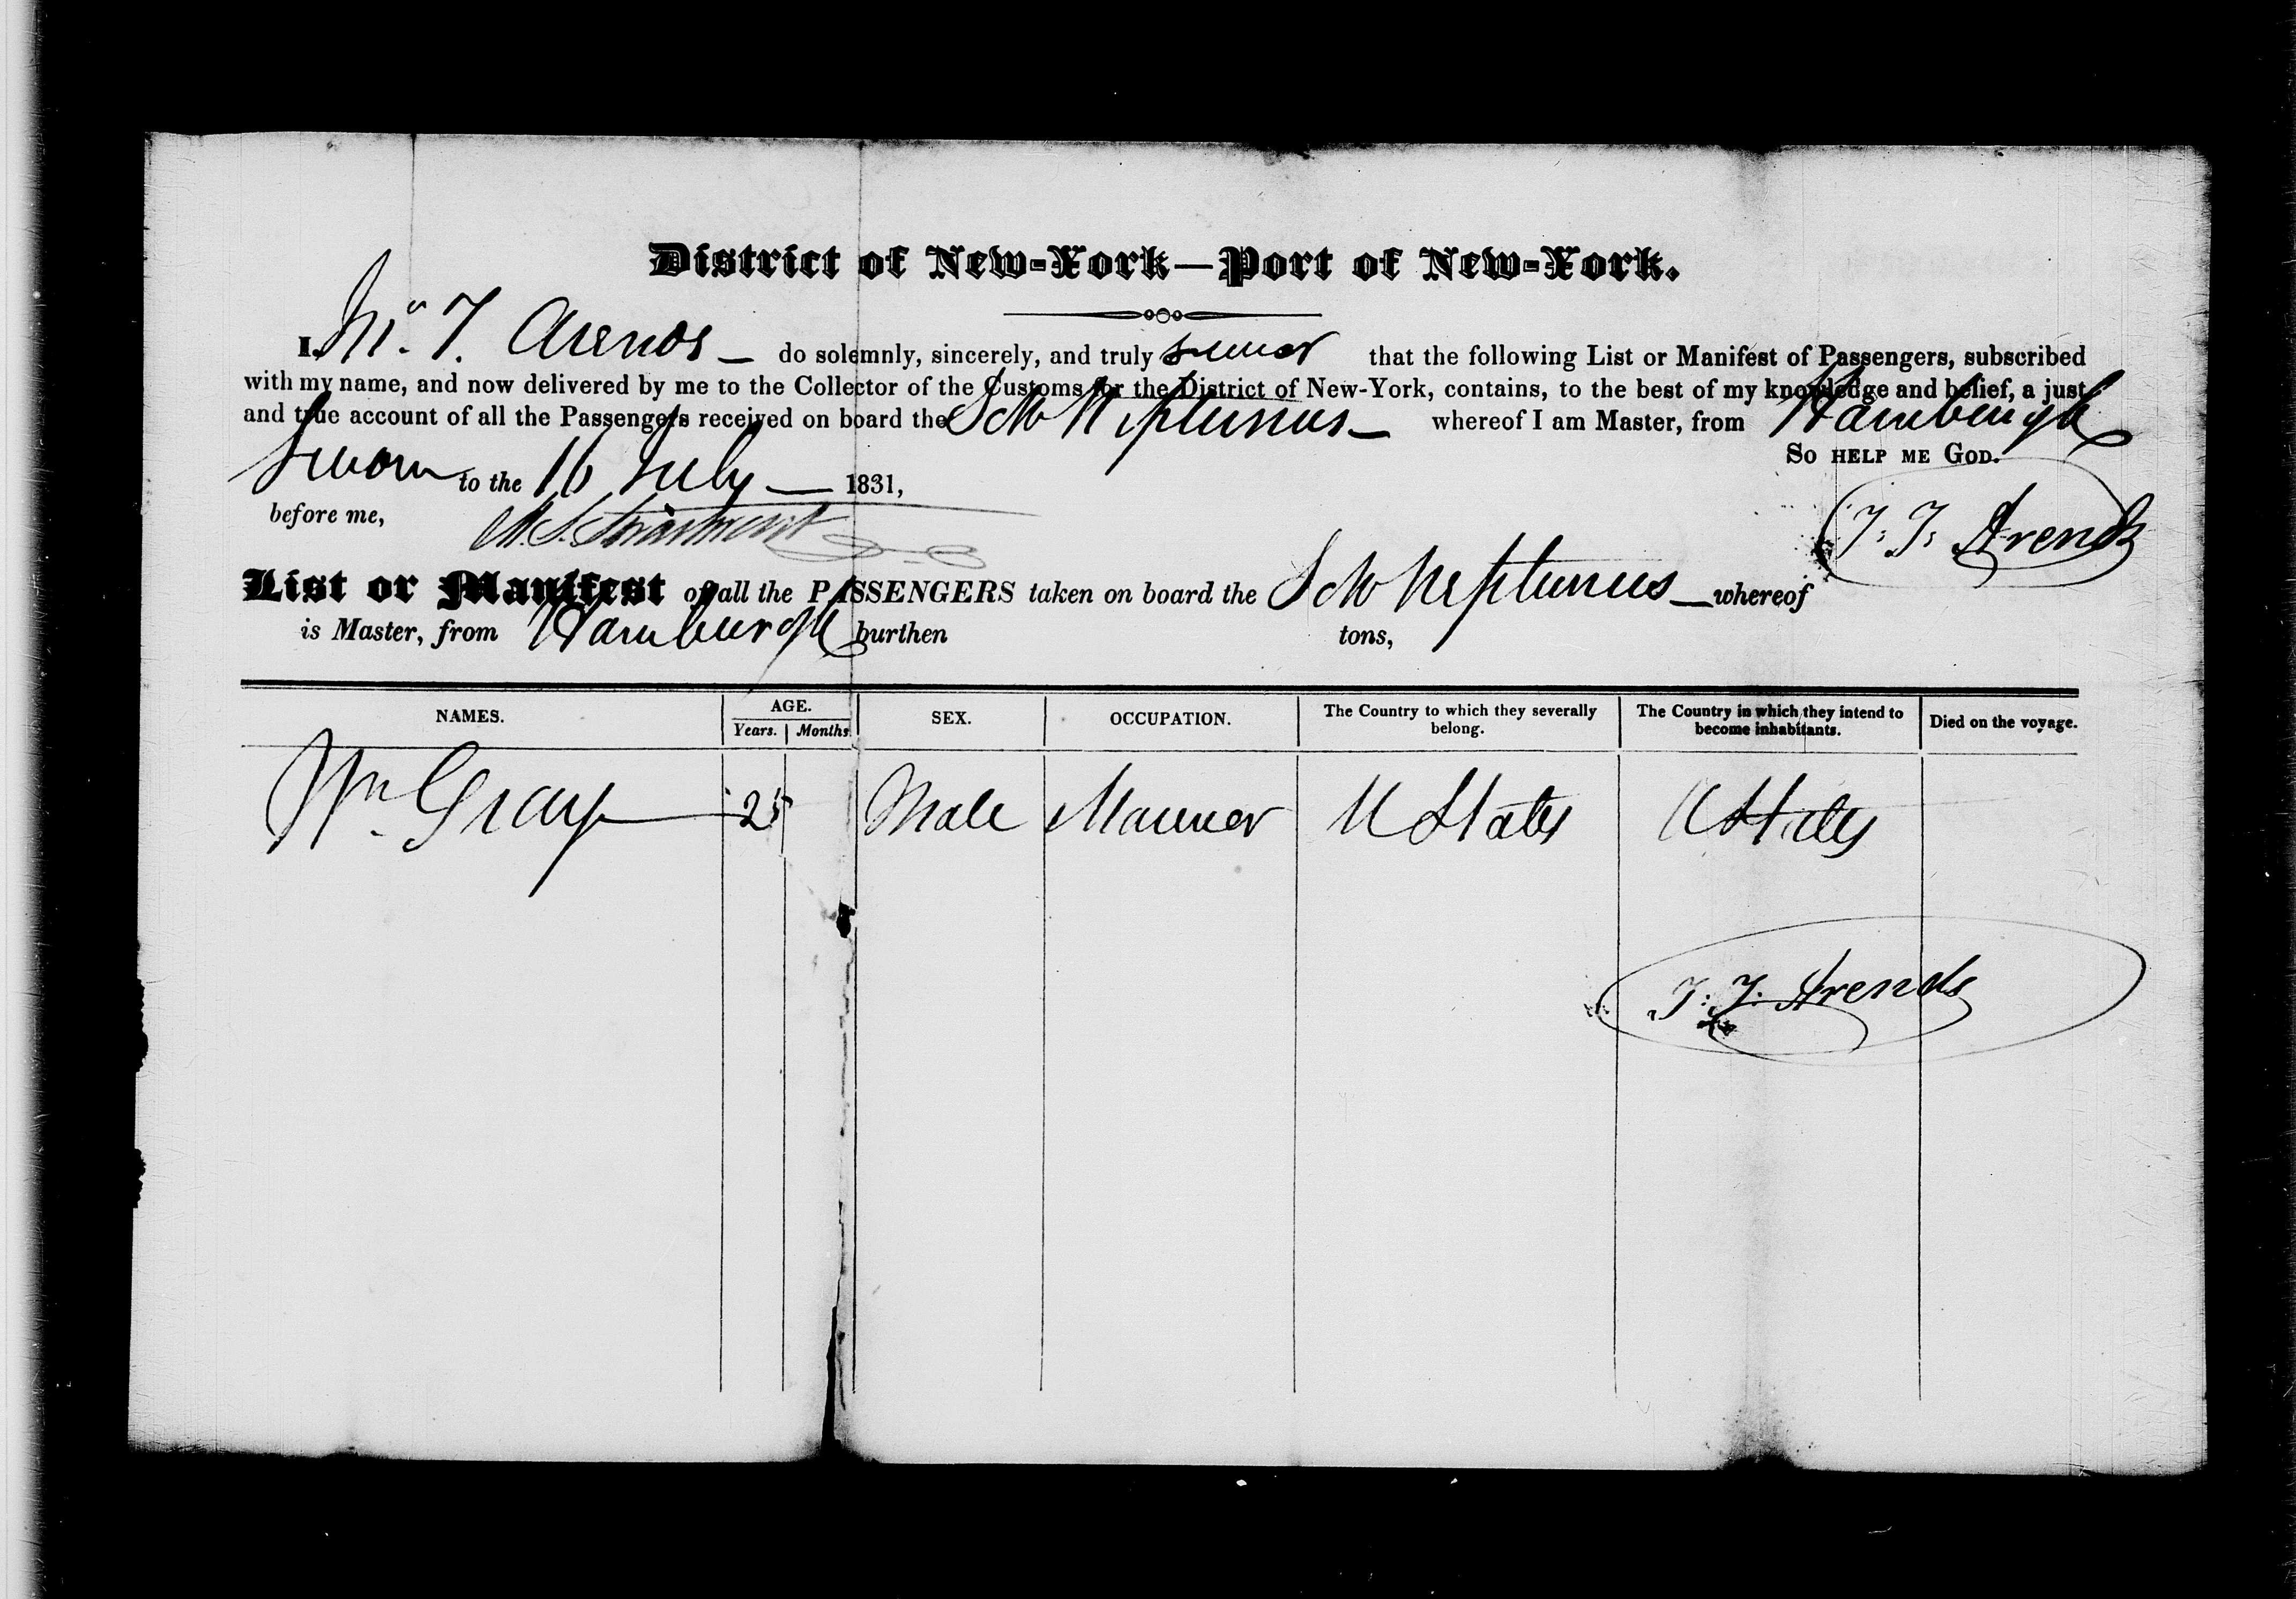 District of New-York—Port of New-York.
I, T. Arends — do solemnly, sincerely, and truly swear that the following List or Manifest of Passengers, subscribed
with my name, and now delivered by me to the Collector of the Customs for the District of New-York, contains, to the best of my knowledge and belief, a just
and true account of all the Passengers received on board the Sch Neptunus — whereof I am Master, from Hamburgh
So help me God.
Sworn to the 16 July — 1831,
before me,
T: T: Arends
List or Manifest of all the PASSENGERS taken on board the Sch Neptunus — whereof
is Master, from Hamburgh burthen tons,
NAMES. AGE. Years. Months. SEX. OCCUPATION. The Country to which they severally belong. The Country in which they intend to become inhabitants. Died on the voyage.
Wm Gray 25 Male Mariner U States U States
T: T: Arends